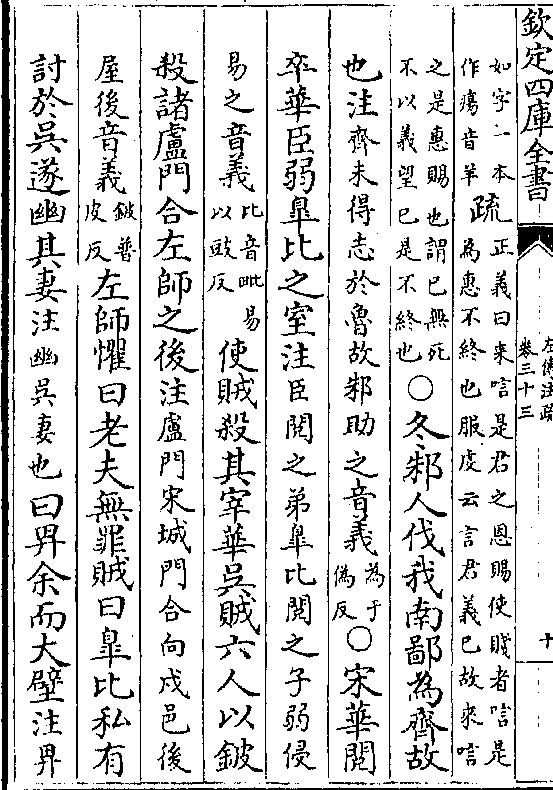 欽定四庫全書
左傳注疏
卷三十三
十
如字一本
作瘍音羊
疏
正義曰來唁是君之恩賜使賤者唁是
為惠不終也服虔云言君義已故來唁
之是惠賜也謂已無死
不以義望已是不終也
○冬邾人伐我南鄙為齊故
也注齊未得志於魯故邾助之音義為于偽反○宋華閱
卒華臣弱臯比之室注臣閱之弟臯比閱之子弱侵
易之音義比音毗易以豉反使賊殺其宰華吳賊六人以鈹
殺諸盧門合左師之後注盧門宋城門合向戌邑後
屋後音義鈹普皮反左師懼曰老夫無罪賊曰臯比私有
討於吳遂幽其妻注幽吳妻也曰畀余而大璧注畀